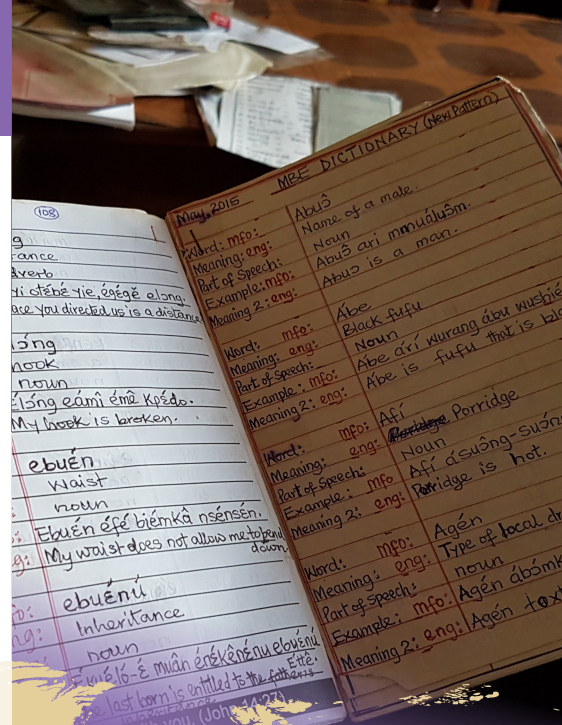 108
g
ance
verb
yi otébé yie, égégě elɔng.
ace you directed us is a distance
lɔ́ng
hook
noun
élɔ́ng eámî émê kpédo.
My hook is broken.
ebuɛ́n
waist
noun
Ebuɛ́n éfé biémkâ nsénsén.
My waist does not allow me to bend
down
ebuɛ́nú
Inheritance
noun
muân érékênénu ebuɛ́nú
Éttê.
last born is entitled to the father's
you. (John 14:27)
MBE DICTIONARY (New Pattern)
May, 2015
Word: mfo: Abuɔ̂
Meaning: eng: Name of a male.
Part of Speech: Noun
Example: mfo: Abuɔ̂ ari mmuáluɔ̂m.
Meaning 2: eng: Abuɔ is a man.
Word: mfo: Ábe
Meaning: eng: Black fufu
Part of Speech: Noun
Example: mfo: Ábe árí wurang ábu wushié
Meaning 2: eng: Abe is fufu that is bla
Word: mfo: Afí
Meaning: eng: Porridge
Part of Speech: Noun
Example: mfo Afí ásuông-suón
Meaning 2: eng: Porridge is hot.
Word: mfo: Agén
Meaning: eng: Type of local dr
Part of Speech: noun
Example: mfo: Agén ábómk
Meaning 2: eng: Agén tox